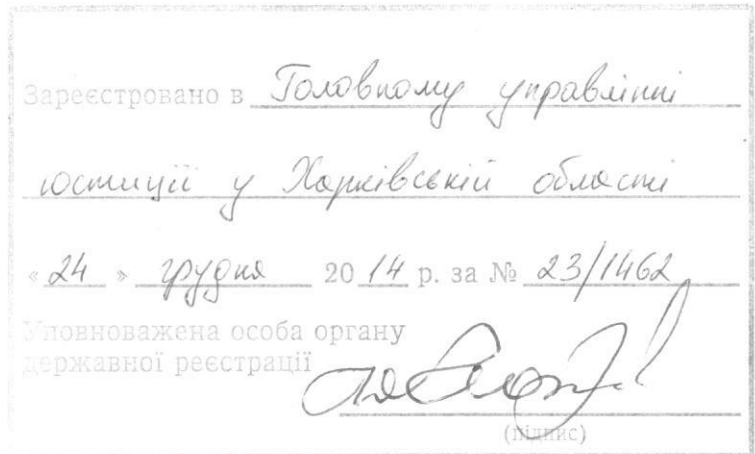 Зареєстровано в Головному управлінні
юстиції у Харківській області
« 24 » грудня 20 14 р. за № 23/1462
Уповноважена особа органу
державної реєстрації
(підпис)